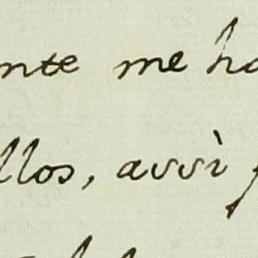 nte me ha
llos, assì